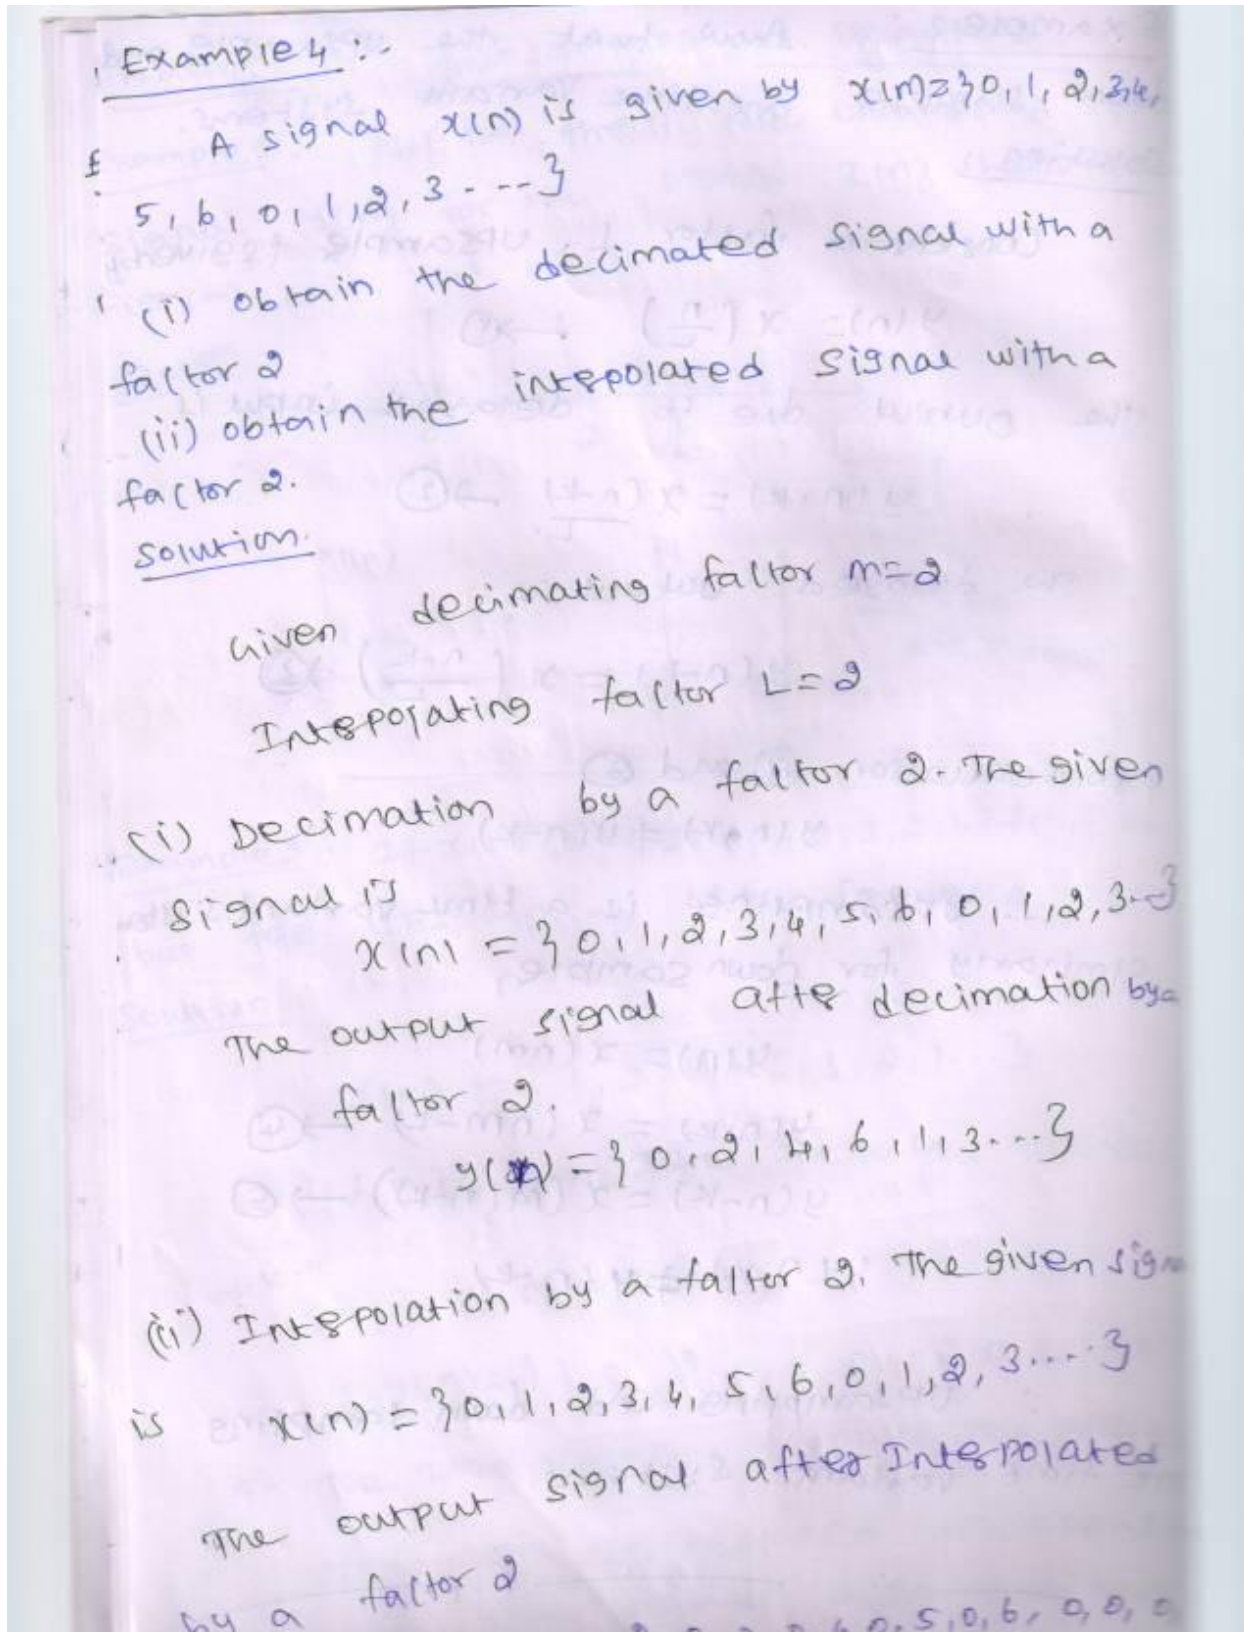 Example 4 :-
A signal x(n) is given by x(n)={0, 1, 2, 3, 4,
5, 6, 0, 1, 2, 3 - - - }
(i) obtain the decimated signal with a
factor 2
(ii) obtain the interpolated signal with a
factor 2.
solution.
Given decimating factor m=2
Interpolating factor L=2
(i) Decimation by a factor 2. The given
signal is
x(n) = {0, 1, 2, 3, 4, 5, 6, 0, 1, 2, 3--}
The output signal after decimation by a
factor 2.
y(n) = {0, 2, 4, 6, 1, 3. ...}
(ii) Interpolation by a factor 2. The given sign
is x(n) = {0, 1, 2, 3, 4, 5, 6, 0, 1, 2, 3....}
The output signal after Interpolated
by a factor 2
0, 5, 0, 6, 0, 0, 0